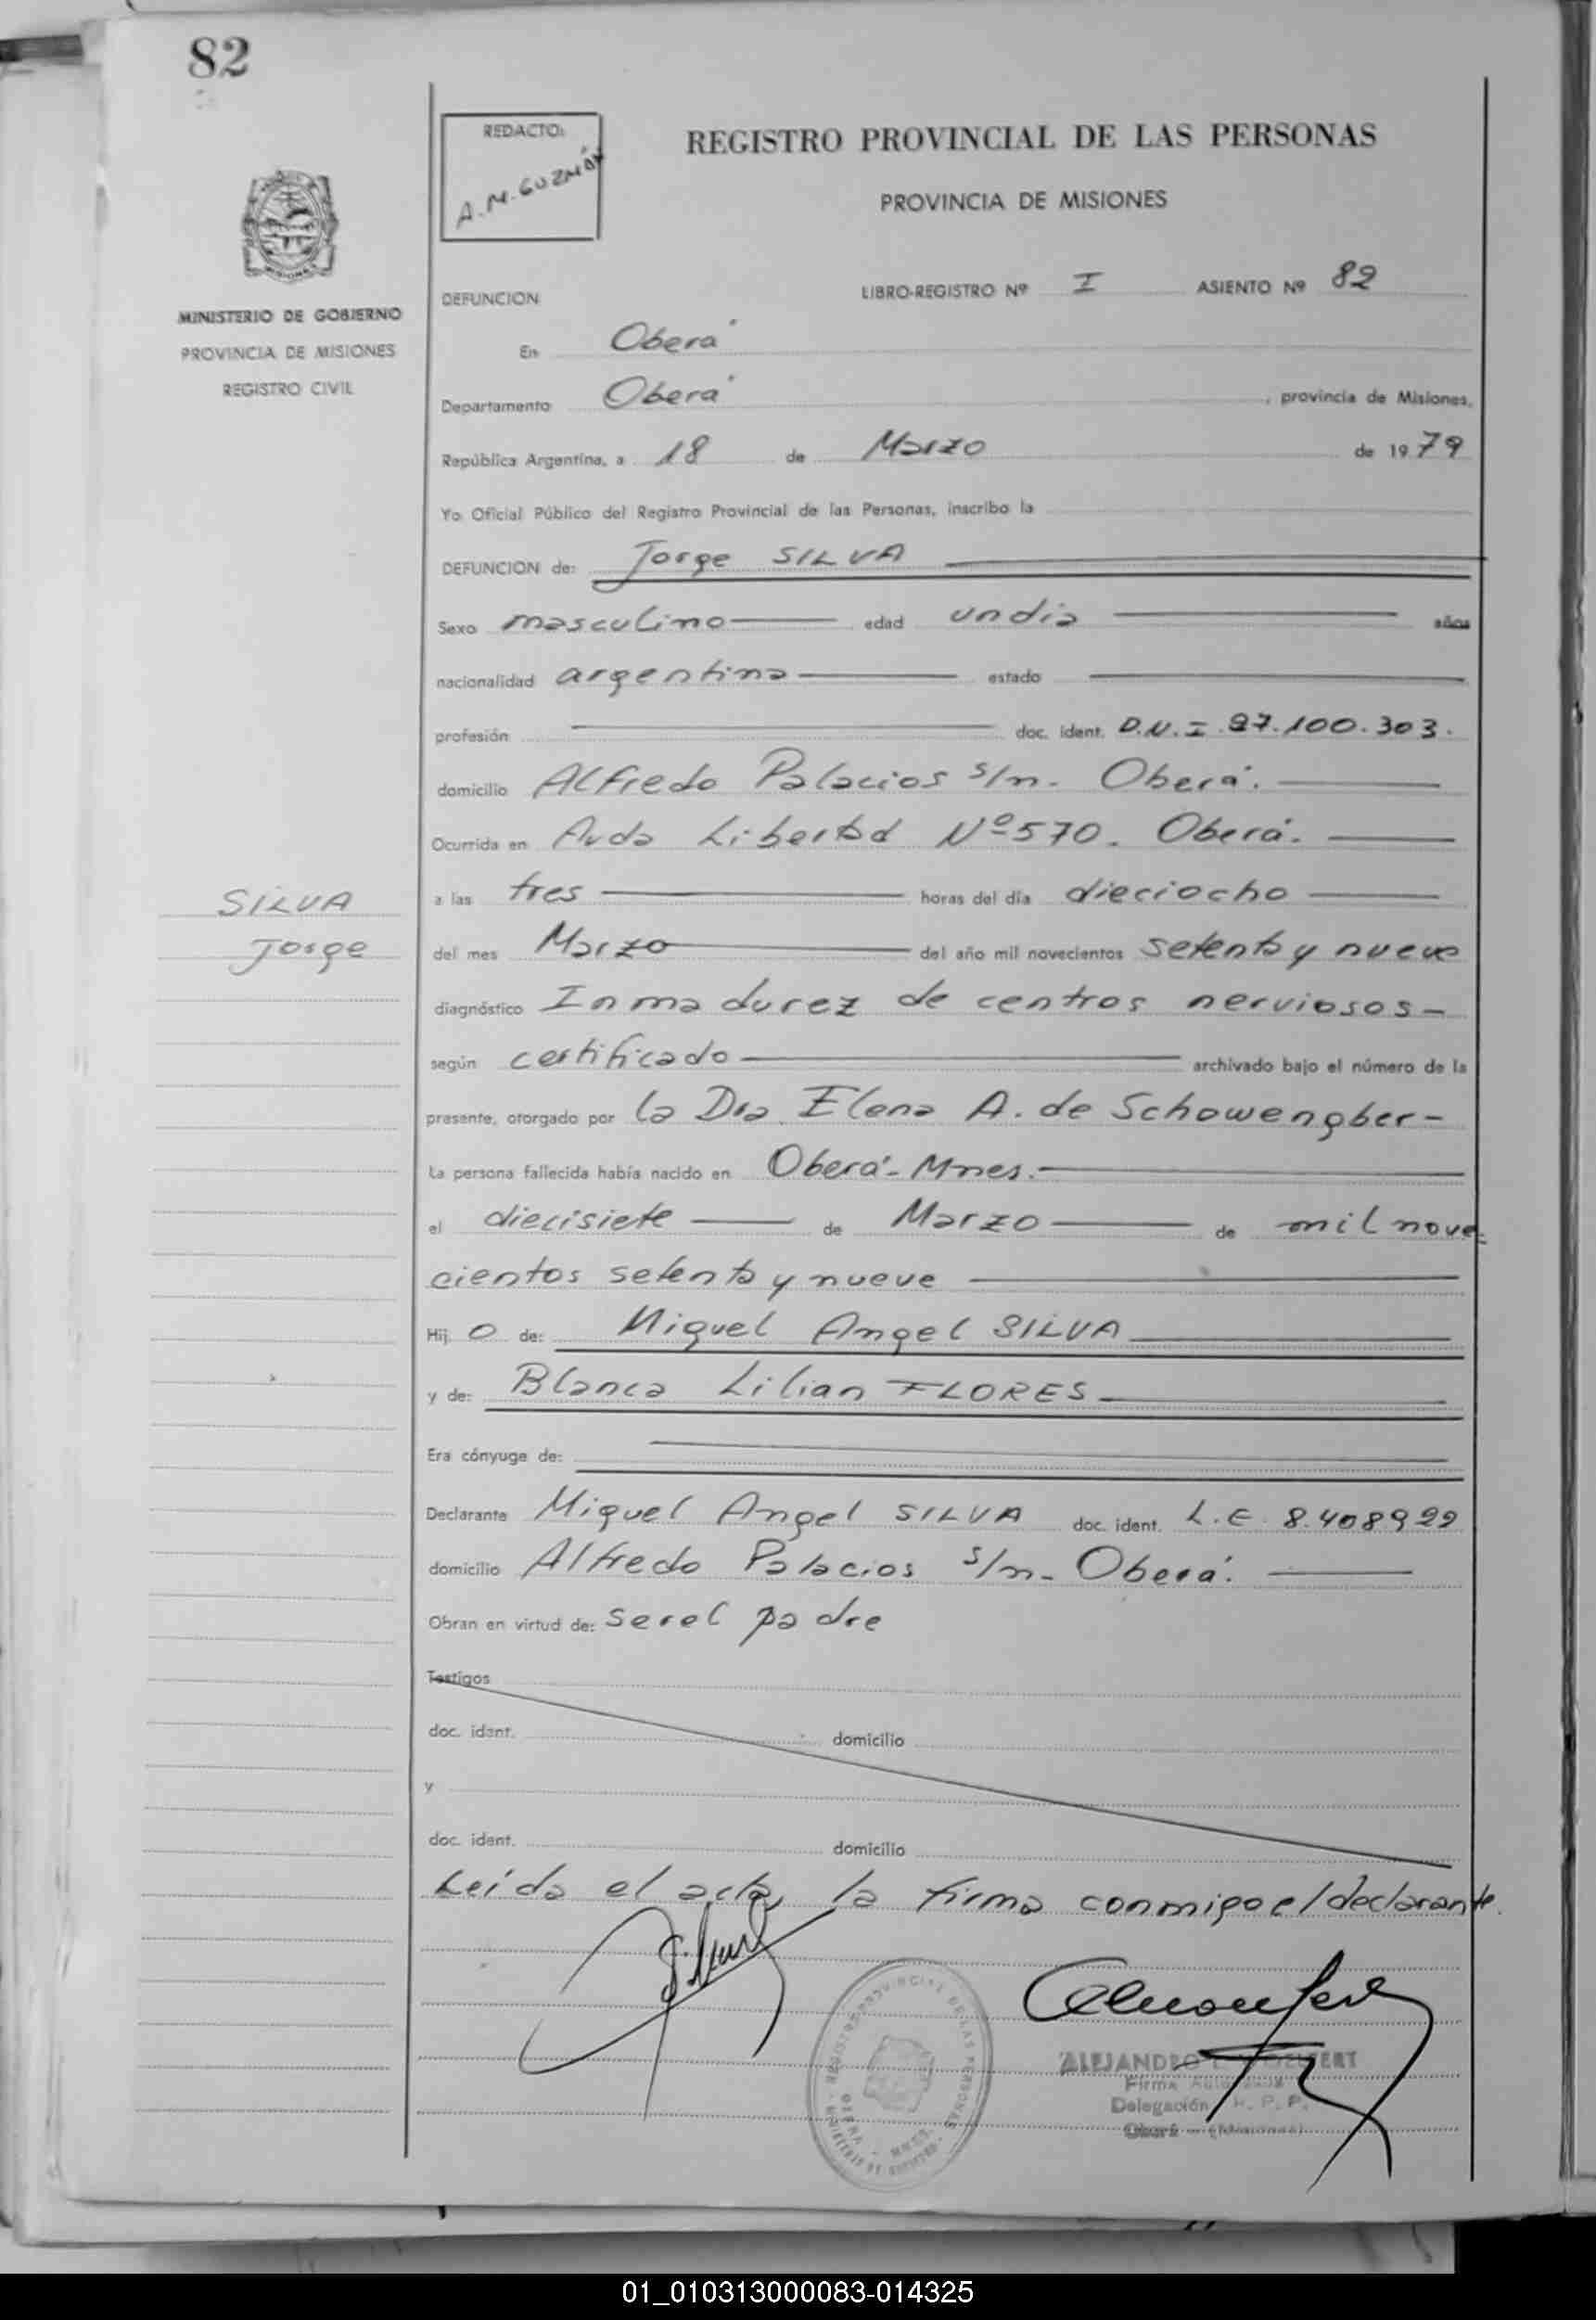 82
REDACTO:
A.M. GUZMÁN
REGISTRO PROVINCIAL DE LAS PERSONAS
PROVINCIA DE MISIONES
MINISTERIO DE GOBIERNO
PROVINCIA DE MISIONES
REGISTRO CIVIL
DEFUNCION
LIBRO-REGISTRO Nº I ASIENTO Nº 82
En Oberá
Departamento Oberá, provincia de Misiones,
República Argentina, a 18 de Marzo de 1979
Yo Oficial Público del Registro Provincial de las Personas, inscribo la
DEFUNCION de: Jorge SILVA
Sexo masculino edad un dia años
nacionalidad argentina estado
profesión doc. ident. D.N.I. 27.100.303.
domicilio Alfredo Palacios s/n. Oberá.
Ocurrida en Avda Libertad Nº 570. Oberá.
SILVA
Jorge
a las tres horas del día dieciocho
del mes Marzo del año mil novecientos setenta y nueve
diagnóstico Inmadurez de centros nerviosos-
según certificado archivado bajo el número de la
presente, otorgado por la Dra Elena A. de Schowengber-
La persona fallecida había nacido en Oberá- Mnes.
el diecisiete de Marzo de mil nove-
cientos setenta y nueve
Hijo de: Miguel Angel SILVA
y de: Blanca Lilian FLORES
Era cónyuge de:
Declarante Miguel Angel SILVA doc. ident. L.E. 8.408922
domicilio Alfredo Palacios s/n- Oberá.
Obran en virtud de: ser el padre
Testigos
doc. ident. domicilio
y
doc. ident. domicilio
Leída el acta, la firma conmigo el declarante.
REGISTRO PROVINCIAL DE LAS PERSONAS
ALEJANDRO
Firma
Delegación R. P. P.
Oberá - (Misiones)
01_010313000083-014325